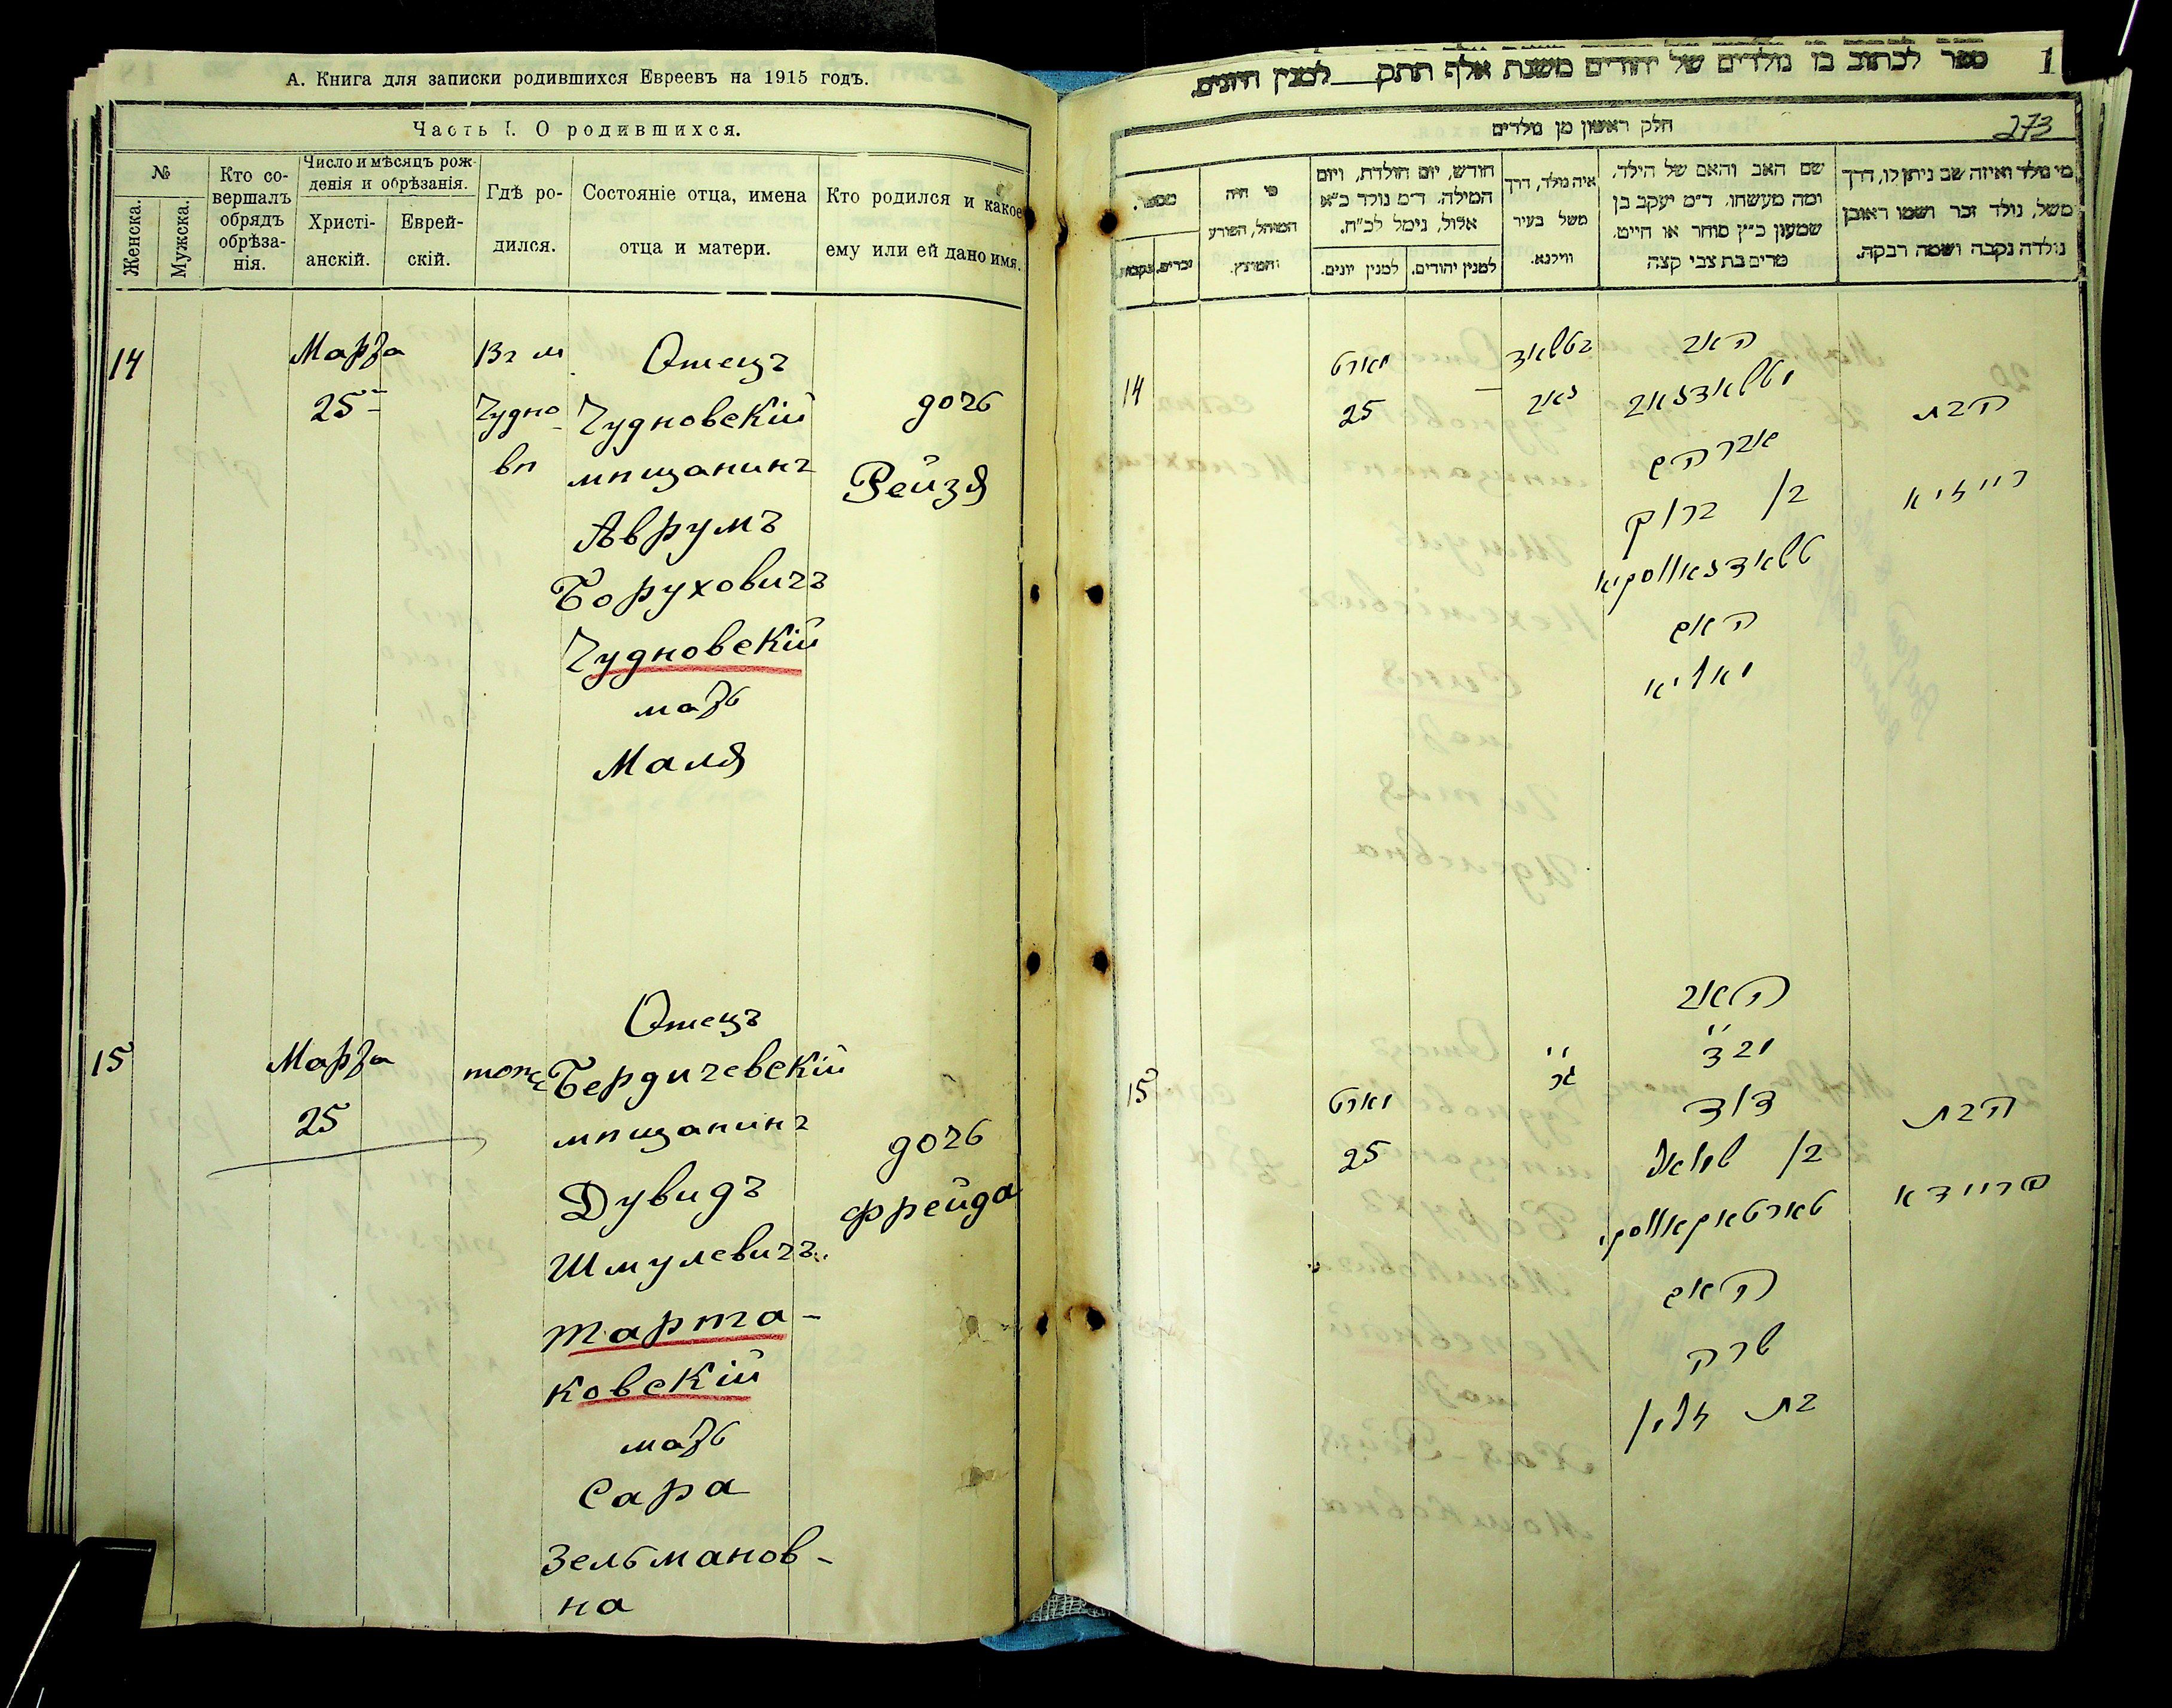 А. Книга для записки родившихся Евреевъ на 1915 годъ.
Часть I. О родившихся.
№
Женска.
Мужска.
Кто со-
вершалъ
обрядъ
обрѣза-
нія.
Число и мѣсяцъ рож-
денія и обрѣзанія.
Христі-
анскій.
Еврей-
скій.
Гдѣ ро-
дился.
Состояніе отца, имена
отца и матери.
Кто родился и какое
ему или ей дано имя.
14
Марта
25
Въ м
Чудно-
вѣ
Отецъ
Чудновскій
мѣщанинъ
Аврумъ
Боруховичъ
Чудновскій
мать
Маля
дочь
Рейзя
15
Марта
25
тоже
Отецъ
Бердичевскій
мѣщанинъ
Дувидъ
Шмулевичъ
Тарта-
ковскій
мать
Сара
Зельманов-
на
дочь
Фрейда
ספר לכתוב בו נולדים של יהודים משנת אלף תתק למנין היונים.
1
חלק ראשון מן נולדים
273
מספר.
זכרים.
נקבות.
מי היה
המוהל, הפורע
והמוצץ.
חודש, יום הולדת, ויום
המילה. ד״מ נולד כ״א
אלול, נימל לכ״ח.
למנין יונים.
למנין יהודים.
איה נולד, דרך
משל בעיר
ווילנא.
שם האב והאם של הילד.
ומה מעשהו. ד״מ יעקב בן
שמעון כ״ץ סוחר או חייט.
מרים בת צבי קצה
מי נולד ואיזה שם ניתן לו, דרך
משל, נולד זכר ושמו ראובן
נולדה נקבה ושמה רבקה.
14
מארט
25
האב
אברהם
בן ברוך
טשאדנאווסקיא
האם
מאליא
הבת
רייזיא
15
מארט
25
האב
דוד
בן שמואל
טארטאקאווסקי
האם
שרה
בת זלמן
הבת
פריידא